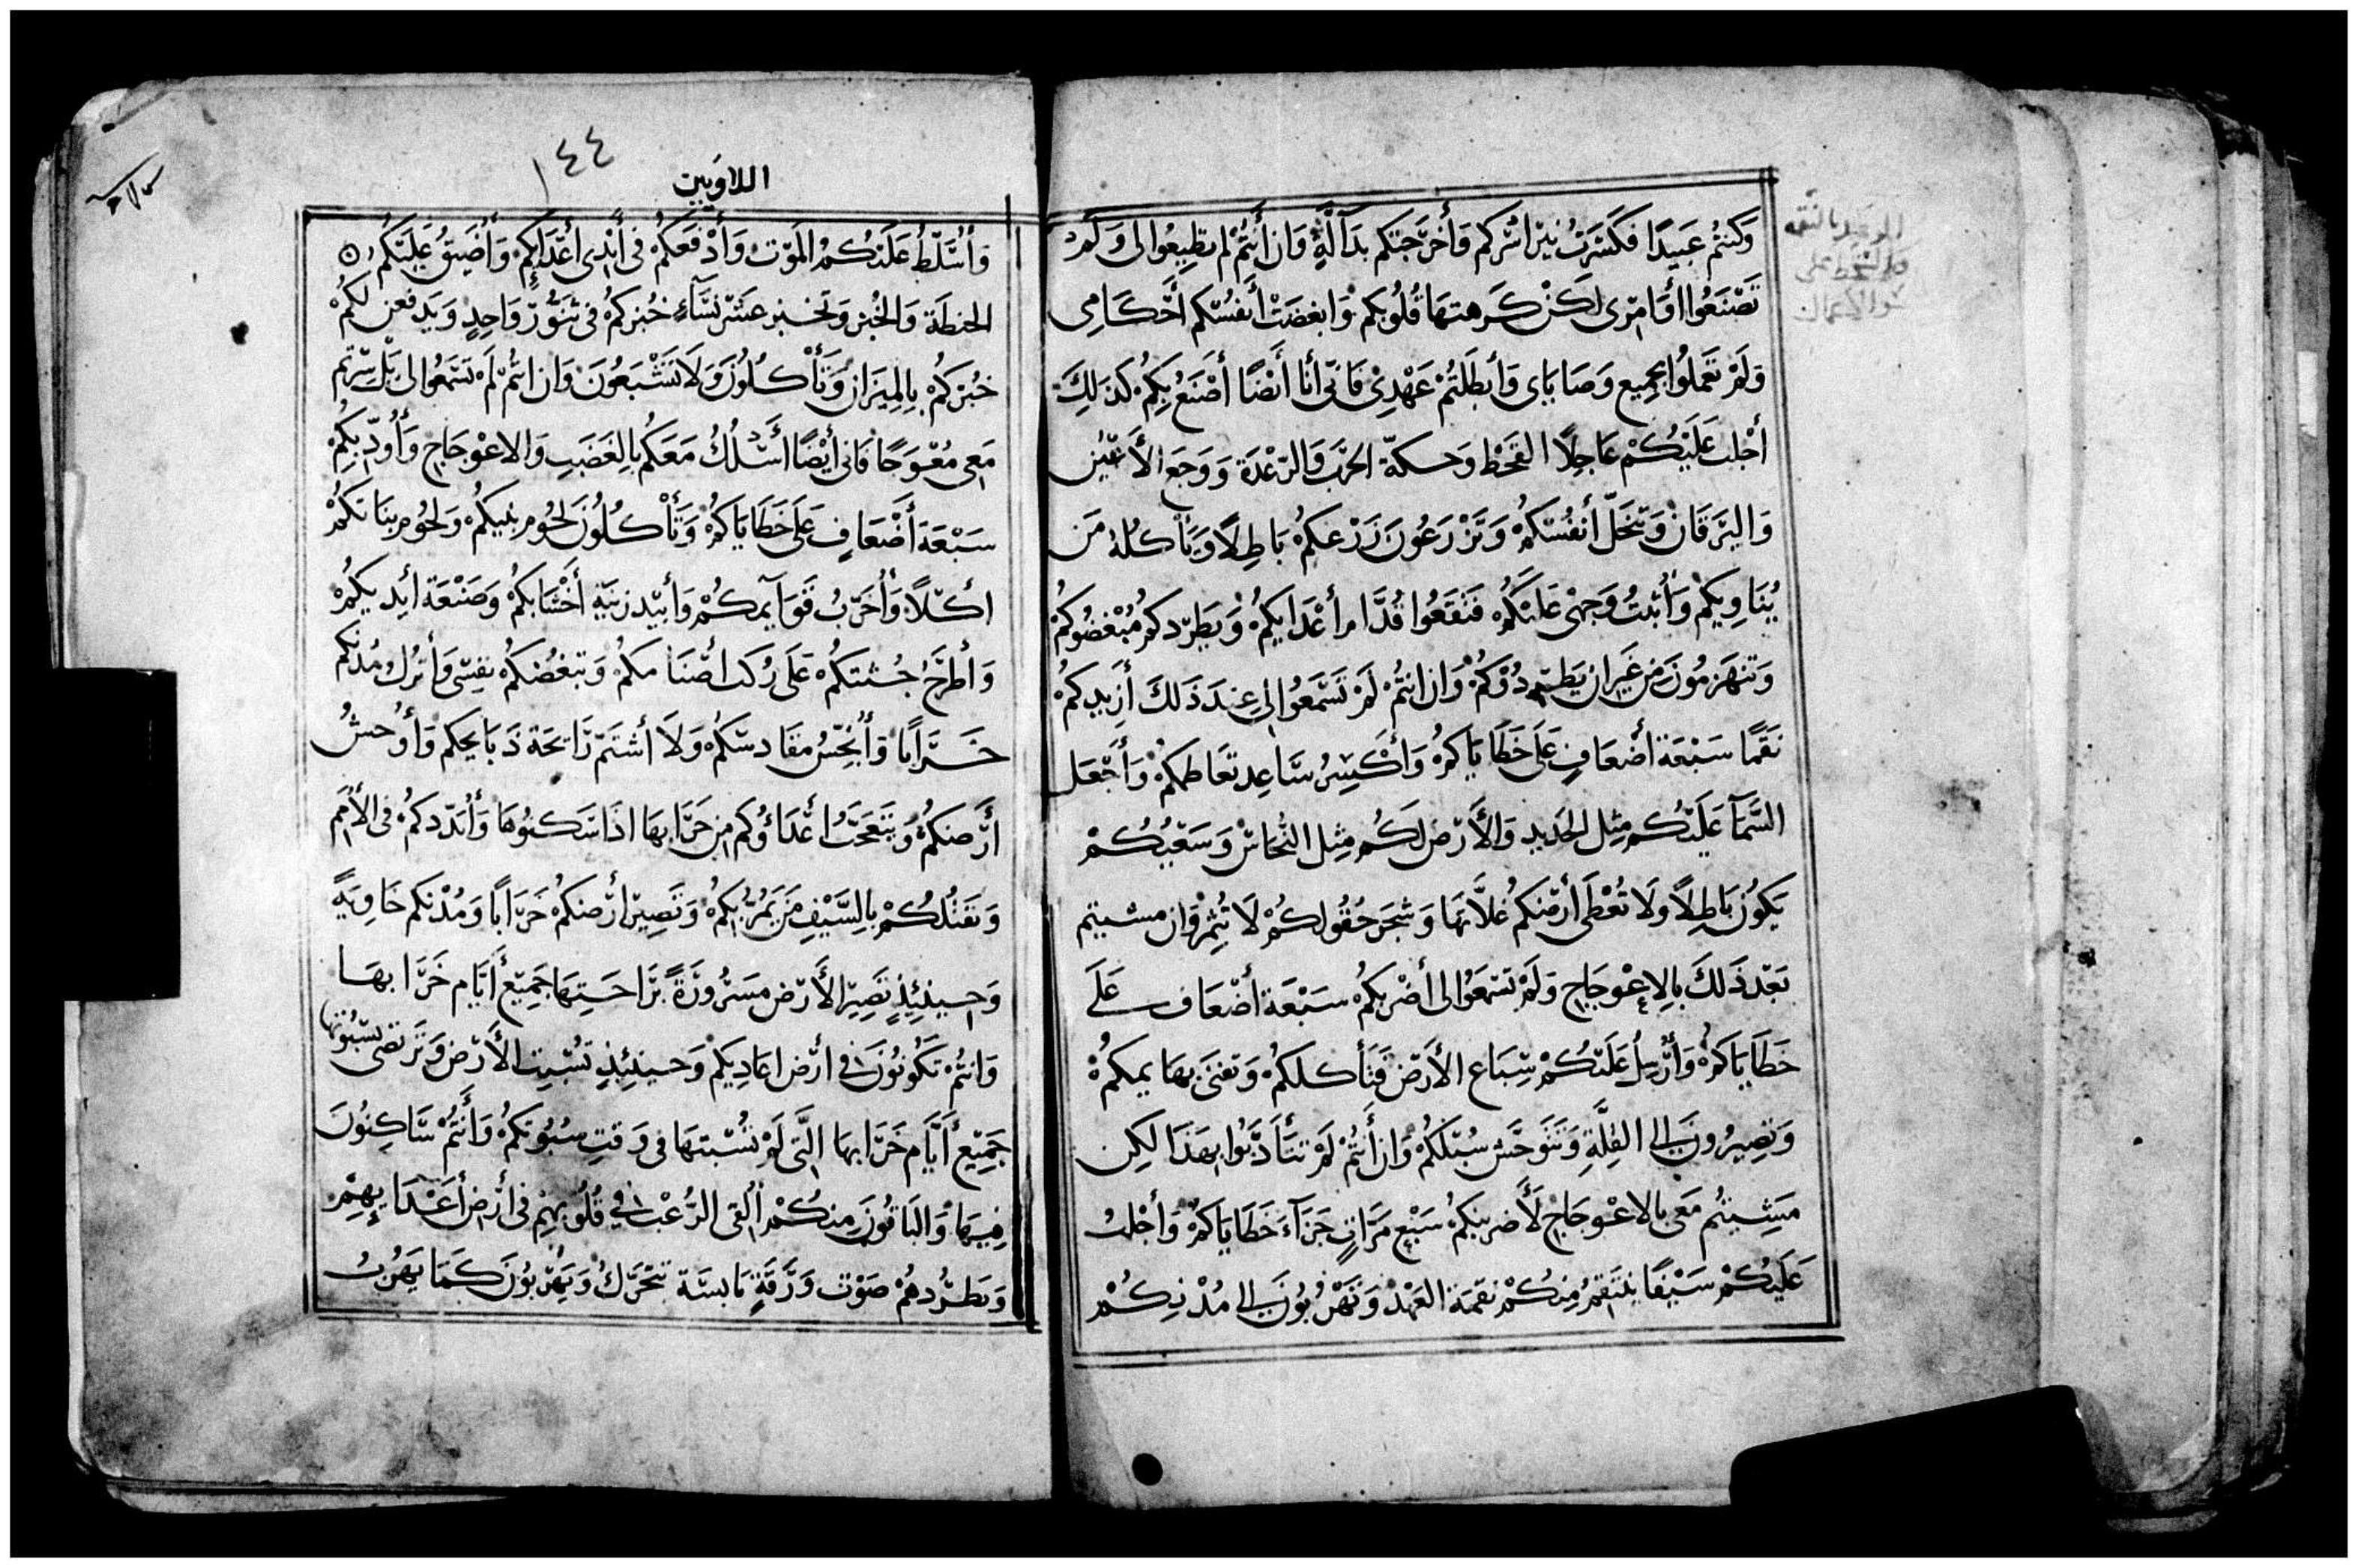 وَكُنتُم عَبِيدًا فَكَسَّرْتُ نِيرَ اسْرِكم وَأخرَجتكم بدَآلّةٍ وَان أَنتُمْ لم تطِيعُوا لى وَلَمْ
تَصْنَعُوا أوَامِرى لكِنْ كَرهتهَا قُلُوبكم وَابغضَتْ أَنفسُكم أحْكَامِى
وَلَمْ تَعمَلُوا بجمِيع وَصَايَاى وَأبطَلتمْ عَهْدِىْ فَانّى أنا أَيْضًا أصْنَعُ بِكمْ كذلِكَ
أجْلب عَلَيْكُمْ عَاجِلًا القحْط وَحكّة الجرَب وَالرّعْدَة وَوَجَع الأَعْيُن
وَاليَرقَانْ وَتنحَلّ أنفُسُكمْ وَتزْرَعُونَ زَرْعكمْ بَاطِلًا وَيَأكلهُ مَن
يُنَاوِيكم وَأُثبتُ وَجهى عَلَيْكُمْ فتقعُوا قُدَّام أعْدَايكمْ وَيَطردكم مُبْغضُوكمْ
وَتنهَزمُونَ مِن غَير ان يَطردُوْكمْ وَان انتمْ لَمْ تَسْمَعُوا لِى عِندَ ذَلكَ أزيدكمْ
نَقمًا سَبْعَة أضْعَافٍ عَلَى خَطَايَاكمْ وَأكسِرُ سَاعِد تعَاظمكمْ وَأجْعَل
السَّمَآ عَلَيْكُم مِثل الحَديد وَالأَرْض لكُم مِثل النُّحَاسْ وَسَعْيُكُمْ
يَكُون بَاطِلًا ولَا تُعْطى أرْضكمْ غلَّاتهَا وَشجَر حُقُولكُمْ لَا تُثمِرْ وَان مشيتم
بَعْد ذَلكَ بالِاعْوجَاج وَلَمْ تسْمَعُوا لى أضْربكمْ سَبْعَة أضْعَاف عَلَى
خَطَايَاكمْ وَأُرْسِلُ عَلَيْكُمْ سِبَاع الأرْض فَتأكلكمْ وَتفنى بهَايمكمْ
وَتصِيرُونَ الى القِلَّةِ وَتتَوحَّش سُبُلكمْ وَان أَنتُمْ لَمْ تتَأَدَّبُوا بهَذَا لكِن
مَشِيتُم مَعى بالاعْوجَاج لَأضربنكمْ سَبْع مَرَّاتٍ جَزَآءَ خَطَايَاكمْ وَأجْلبُ
عَلَيْكُمْ سَيْفًا ينتقمُ مِنكُمْ نقمَة العَهْدْ وَتَهْرُبُونَ الى مُدْنِكُمْ
١٤٤
اللاويين
وَأُسَلّطُ عَلَيْكُمُ المَوْت وَأدْفَعكُمْ فى أيْدى أعْدَايِكُمْ وَأُضَيّقُ عَلَيْكُم
الحِنطَة وَالخُبْز وَتخبز عَشَر نِسَآءٍ خُبْزكمْ فى تنُّوْرٍ وَاحِدٍ وَيَدفعن لَكُمْ
خبْزكُمْ بِالمِيزَان وَتَأْكُلُونَ وَلَا تَشْبَعُونَ وَان انتُمْ لَمْ تسْمَعُوا لى بَلْ سِرْتم
مَعى مُعْوَجًا فَانى أيْضًا أسْلُكُ مَعَكُم بالِغَضَبِ وَالاعْوجَاج وَأُودّبكُمْ
سَبْعَة أَضْعَافٍ عَلَى خَطَايَاكمْ وَتَأْكُلُونَ لحُوم بَنِيكمْ وَلحُوم بنَاتكمْ
اكلًا وَأُخَرّبُ قوَايمكُمْ وَأبيْد زينَةِ أخْشَابكمْ وَصَنْعَة أيْديكُمْ
وَأطْرَحُ جُثثكمْ عَلَى رُكَب اصْنَامكمْ وَتبغضكمْ نفسى وَأترُك مُدْنكم
خَرَابًا وَأُنجّسُ مقَادسكمْ وَلَا أشتَمّ رَايحَة ذَبَايحكم وَأُوْحشُ
أَرْضكمْ وَيَتعَجّبُ أعْدَاؤُكم مِن خَرَابهَا اذَا سَكنُوهَا وَأُبَدّدكمْ فى الأُمَم
وَتَقتُلكُمْ بالِسَّيْفِ مَن يَمُرّ بكمْ وَتَصِير أرْضكمْ خَرَابًا وَمُدْنكم خَاوِيَةً
وَحِينئِذٍ تَصِير الأَرْض مَسْرُورَةً برَاحَتِهَا جَمِيْع أيّام خَرَابهَا
وَانتُمْ تَكُونُونَ فى ارْض اعَادِيكمْ وَحينئِذٍ تُسْبِت الأَرْض وَترْتضى بسُبُوتهَا
جَمِيْعَ أَيَّام خَرَابهَا الَّتى لَمْ تسْبتهَا فى وَقت سُبُوتكمْ وَأَنتُمْ سَاكِنُونَ
فِيهَا وَالبَاقُونَ مِنكُمْ أُلقى الرُّعْب فى قُلُوبهِمْ فى أرْض أَعْدَايهِمْ
وَيَطرُدهُمْ صَوْت وَرَقَةٍ يَابسَة تتحَرَّكُ وَيَهْربُونَ كَمَا يَهْرُبُ